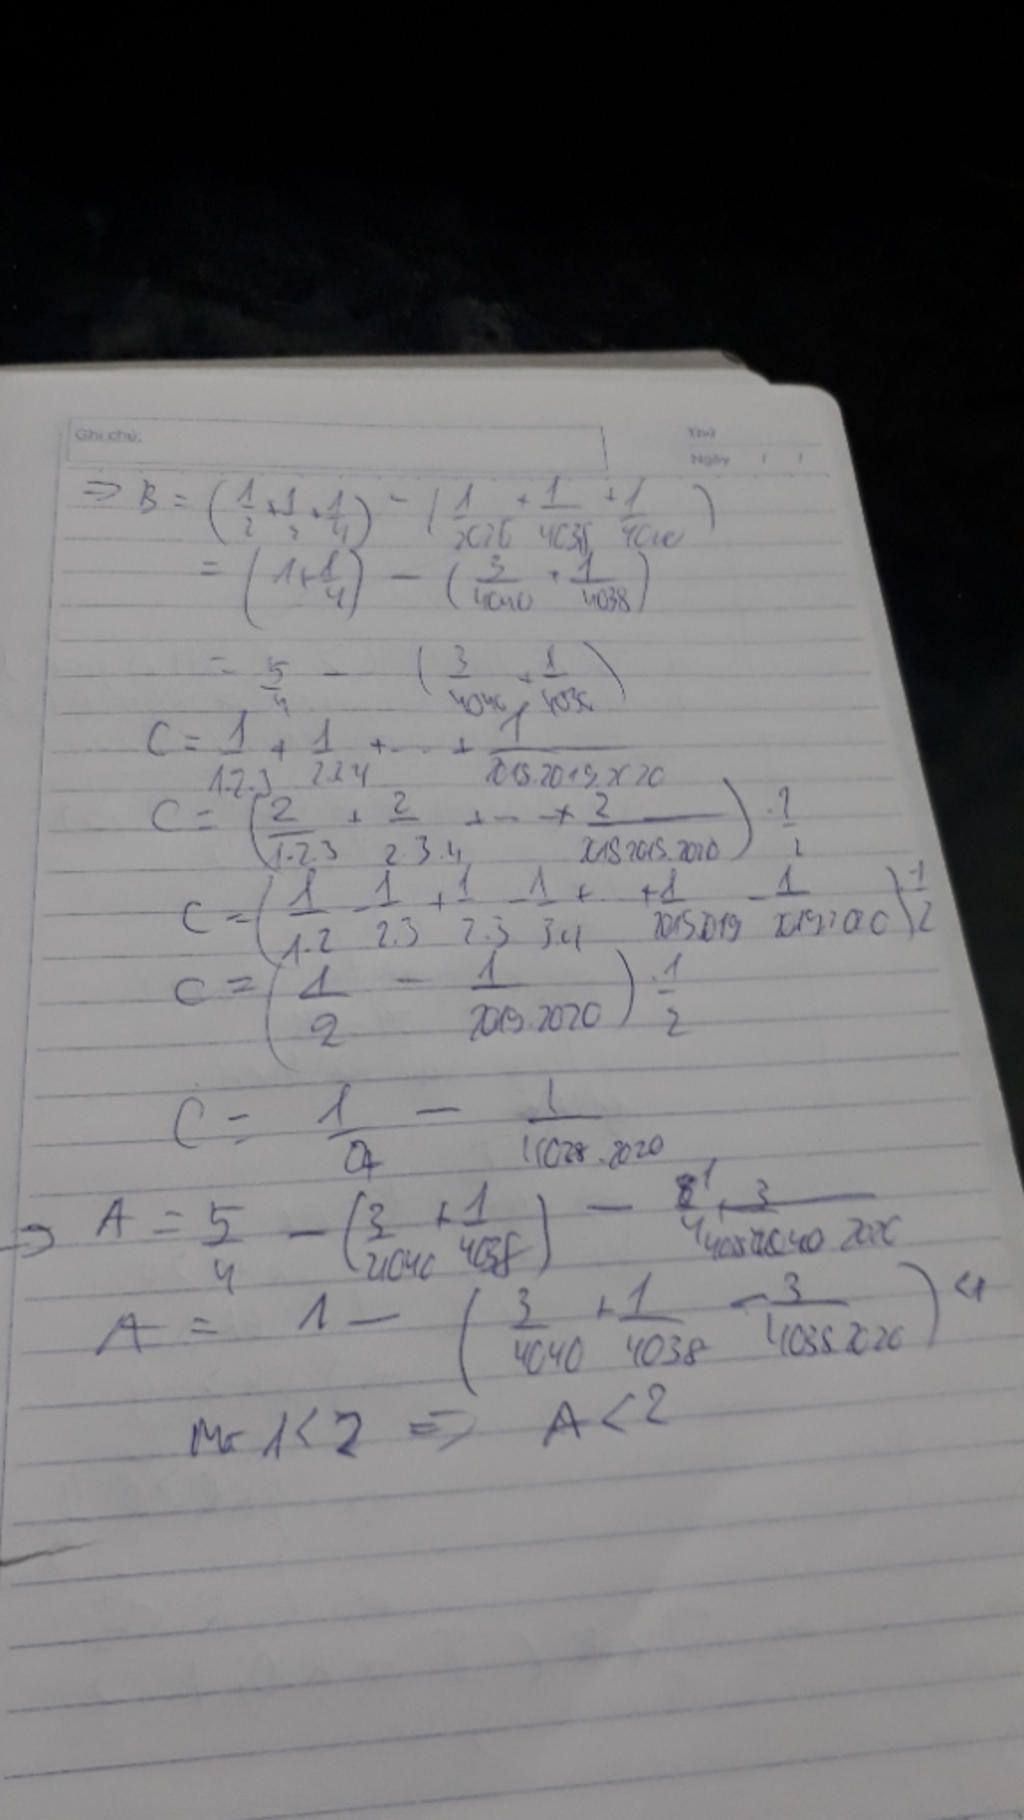 Ghi chú:
Thứ
Ngày / /
=> B = (1/2 + 1/2 + 1/4) - (1/2020 + 1/4038 + 1/4040)
= (1 + 1/4) - (3/4040 + 1/4038)
= 5/4 - (3/4040 + 1/4038)
C = 1/1.2.3 + 1/2.3.4 + ... + 1/2018.2019.2020
C = (2/1.2.3 + 2/2.3.4 + ... + 2/2018.2019.2020) . 1/2
C = (1/1.2 - 1/2.3 + 1/2.3 - 1/3.4 + ... + 1/2018.2019 - 1/2019.2020) . 1/2
C = (1/2 - 1/2019.2020) . 1/2
C = 1/4 - 1/4038.2020
=> A = 5/4 - (3/4040 + 1/4038) -
A = 1 - (3/4040 + 1/4038 - 3/4038.2020) < 1
Mà 1 < 2 => A < 2